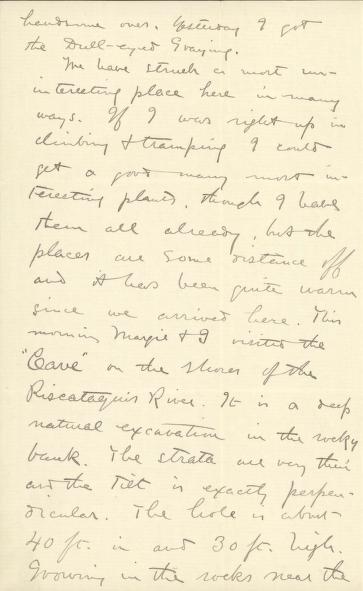 handsome ones. Yesterday I got
the Dull-eyed Grayling.
We have struck a most un-
interesting place here in many
ways. If I was right up in
climbing & tramping I could
get a good many most in-
teresting plants, though I have
them all already, but the
places are some distance off
and it has been quite warm
since we arrived here. This
morning Margie & I visited the
"Cave" on the shores of the
Piscataquis River. It is a deep
natural excavation in the rocky
bank. The strata are very thin
and the tilt is exactly perpen-
dicular. The hole is about
40 ft. in and 30 ft. high.
Growing in the rocks near the